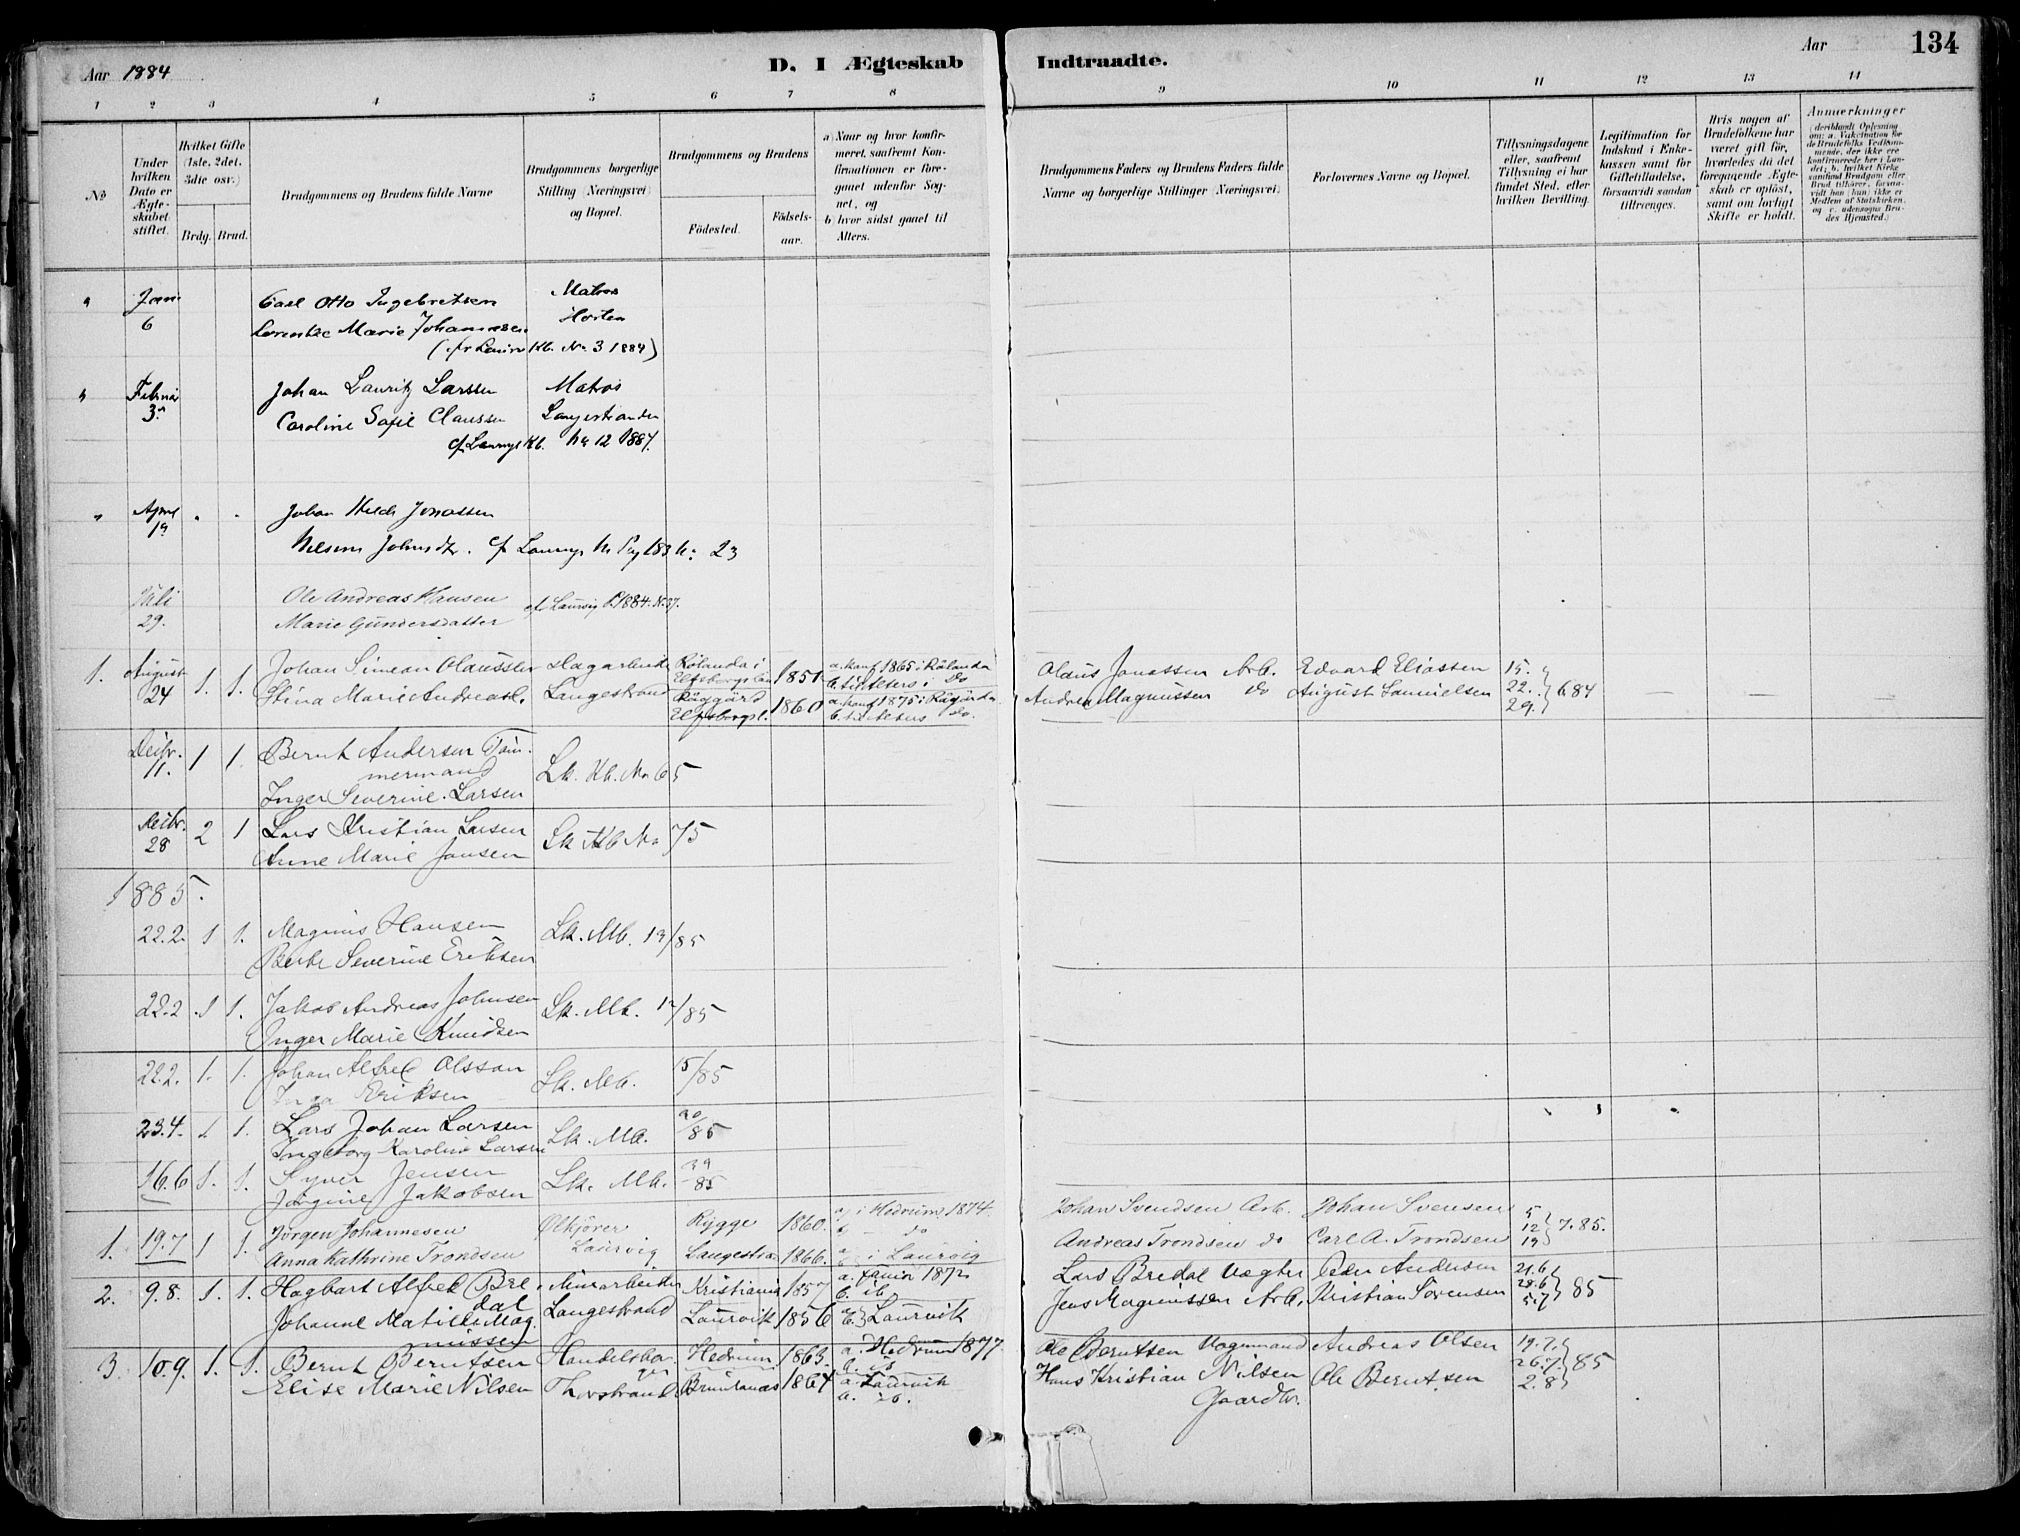 Aar 1884
D. I Ægteskab Indtraadte.
Aar 134
1 2 3 4 5 6 7 8 9 10 11 12 13 14
No
Under hvilken Dato er Ægteskabet stiftet.
Hvilket Gifte (1ste, 2det, 3die osv.)
Brdg. Brud.
Brudgommens og Brudens fulde Navne
Brudgommens borgerlige Stilling (Næringsvei) og Bopæl.
Brudgommens og Brudens
Fødested. Fødselsaar.
a) Naar og hvor konfirmeret, saafremt Konfirmationen er foregaaet udenfor Sognet, og
b) hvor sidst gaaet til Alters.
Brudgommens Faders og Brudens Faders fulde Navne og borgerlige Stillinger (Næringsvei)
Forlovernes Navne og Bopæl.
Tillysningsdagene eller, saafremt Tillysning ei har fundet Sted, efter hvilken Bevilling.
Legitimation for Indskud i Enkekassen samt for Giftetilladelse, forsaavidt saadan tiltrænges.
Hvis nogen af Brudefolkene har været gift før, hvorledes da det foregaaende Ægteskab er opløst, samt om lovligt Skifte er holdt.
Anmerkninger (deriblandt Oplysning om: a. Vakcination for de Brudefolks Vedkommende, der ikke ere konfirmerede her i Landet; b. hvilket Kirkesamfund Brudgom eller Brud tilhører, forsaavidt han (hun) ikke er Medlem af Statskirken, og c. udensogns Brudes Hjemsted.)
" Jan Carl Otto Ingebretsen Matros
6 Lorentze Marie Johannesen Horten
(cfr Laurv Kb. No 3 1884)
" Februar Johan Lauritz Larssen Matros
3 Caroline Sofie Claussen Langestranden
cf. Laurvigs Kb. No 12 1884.
" April " " Johan Jonassen
19 cf Laurvigs Pag 183 No 23
Juli Ole Andreas Hansen cfr Laurvig 1884. N. 37.
29. Marie Gundersdatter
1. August 1. 1. Johan Simeon Olaussen Dagarbeider Rölanda i Elfsborgs Län 1851 a. konf 1865 i Rölanda Olaus Jonassen Arb. Edvard Eliassen 15.
24 Stina Marie Andreasd. Langestrand Elfsborgsl. 1860 a. konf 1875 i do Andrea Magnussen do August Samuelsen 22. 29. } 6 84 — —
Decbr. 1 1. Bernt Andersen Tømmermand Lk. Kb. No 65
11. Inger Severine Larsen
Decbr. 2 1 Lars Kristian Larsen Lk Kb No 75
28 Anne Marie Jansen
1885.
22.2. 1 1. Magnus Hansen Lk. Mb. 13/85
Severine Eriksen
22.2 1 1. Jakob Andreas Johnsen Lk. Mb. /85
Inger Marie Knudsen
22.2. 1. 1. Johan Alfred Olsson Lk. Mb. 15/85
Inga Eriksen
23.4. 1 1. Lars Johan Larsen Lk. Mb. /85
Ingeborg Karoline Larsen
16.6 1. 1. Syver Jensen Lk. Mb. 39/85
Jørgine Jakobsen
1. 19.7 1 1. Jørgen Johannesen Ølkjører Rygge 1860. a) i Hedrum 1874. b do Johan Svendsen Arb. Johan Svensen 5
Anna Kathrine Trondsen Laurvig Langestran 1866. a i Laurvig Andreas Trondsen do Carl A. Trondsen 12 19 } 7.85.
2. 9.8. 1. 1. Hagbart Alfred Bredal Kristiania 1857 a. 1872 b. ib. Lars Bredal Vægter Peder Andersen 21.6
Johanne Matilde Magnussen Langestrand Laurvik 1856 a. b. } Laurvik Jens Magnussen Arb. Kristian Sørensen 28.6 5.7 } 85
3. 10.9. 1. 1. Bernt Berntsen Hedrum 1863. a. Hedrum 1877. b. ib Ole Berntsen Vognmand Andreas Olsen 19.7.
Elise Marie Nilsen Thorstrand Brunlanæs 1864 a. Laurvik b. ib. Hans Kristian Nilsen Gaardbr. Ole Berntsen 26.7. 2.8 } 85